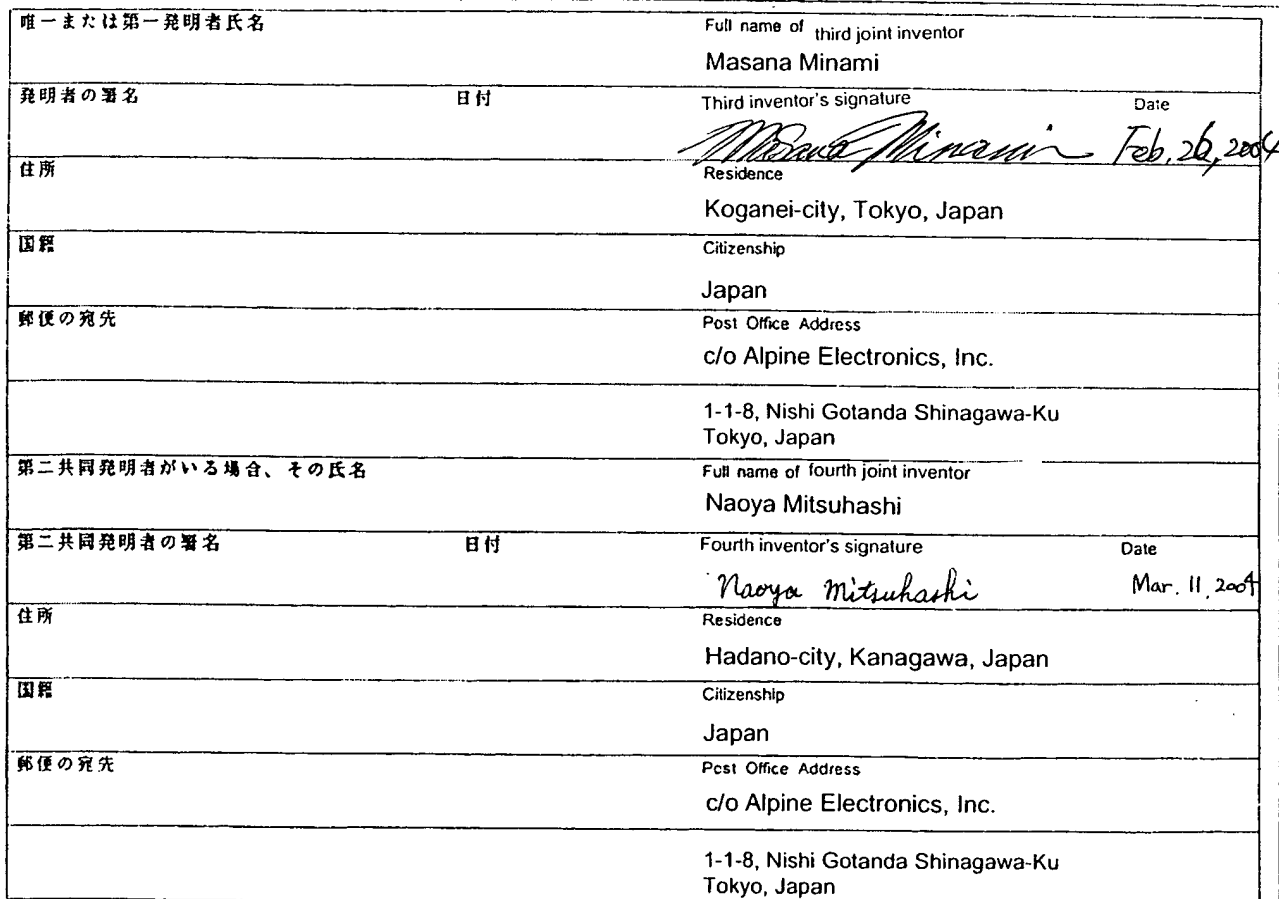 唯一または第一発明者氏名
Full name of third joint inventor
Masana Minami
発明者の署名 日付
Third inventor's signature Date
Masana Minami Feb. 26, 2004
住所
Residence
Koganei-city, Tokyo, Japan
国籍
Citizenship
Japan
郵便の宛先
Post Office Address
c/o Alpine Electronics, Inc.
1-1-8, Nishi Gotanda Shinagawa-Ku
Tokyo, Japan
第二共同発明者がいる場合、その氏名
Full name of fourth joint inventor
Naoya Mitsuhashi
第二共同発明者の署名 日付
Fourth inventor's signature Date
Naoya Mitsuhashi Mar. 11, 2004
住所
Residence
Hadano-city, Kanagawa, Japan
国籍
Citizenship
Japan
郵便の宛先
Post Office Address
c/o Alpine Electronics, Inc.
1-1-8, Nishi Gotanda Shinagawa-Ku
Tokyo, Japan